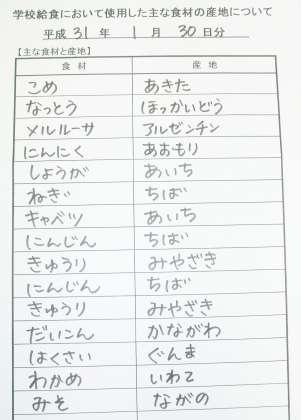 学校給食において使用した主な食材の産地について
平成 31 年 1 月 30 日分
【主な食材と産地】
食材 産地
こめ あきた
なっとう ほっかいどう
メルルーサ アルゼンチン
にんにく あおもり
しょうが あいち
ねぎ ちば
キャベツ あいち
にんじん ちば
きゅうり みやざき
にんじん ちば
きゅうり みやざき
だいこん かながわ
はくさい ぐんま
わかめ いわて
みそ ながの